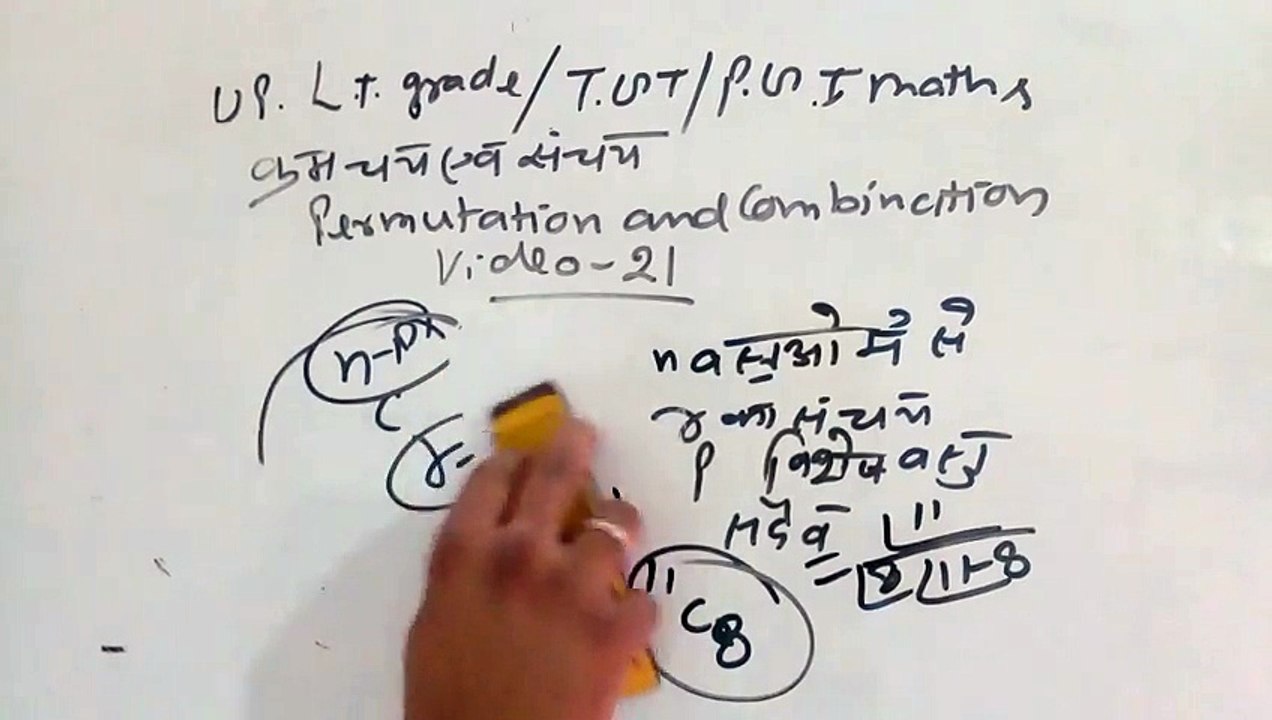 UP. L.T. grade/T.G.T/P.G.T maths
क्रमचय एवं संचय
Permutation and Combination
Video-21
n-p
C
r-
n वस्तुओ में से
r का संचय
p विशेष वस्तु
सदैव
= ⌊11 / ⌊8 ⌊11-8
11C8